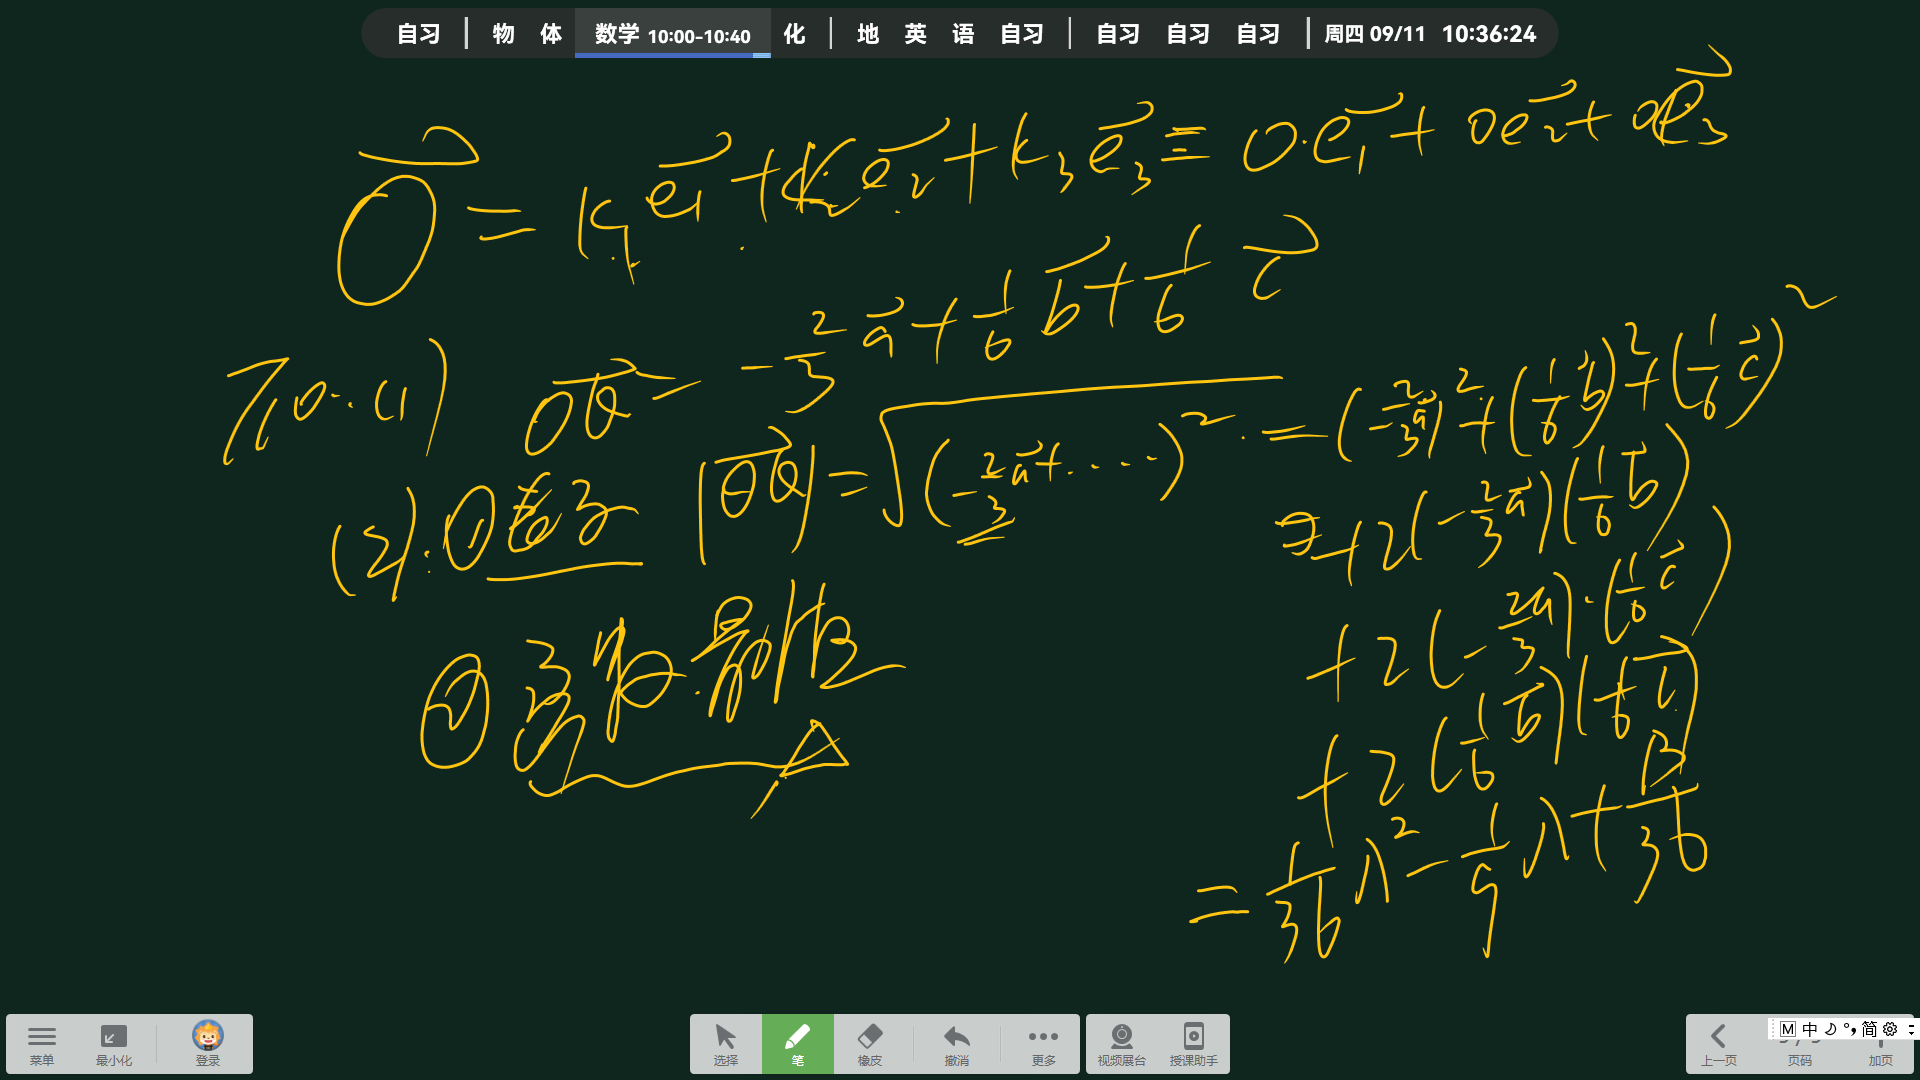 自习 | 物 体 数学 10:00-10:40 化 | 地 英 语 自习 | 自习 自习 自习 | 周四 09/11 10:36:24
0⃗ = k₁e₁⃗ + k₂e₂⃗ + k₃e₃⃗ = 0·e₁⃗ + 0e₂⃗ + 0e₃⃗
T10.(1) OQ⃗ = -2/3 a⃗ + 1/6 b⃗ + 1/6 c⃗
(2). ① |OQ⃗| = √(-2/3 a⃗ + ....)² = (-2/3 a⃗)² + (1/6 b⃗)² + (1/6 c⃗)²
+ 2(-2/3 a⃗)(1/6 b⃗)
+ 2(-2a/3)·(1/6 c⃗)
+ 2(1/6 b⃗)(1/6 c⃗)
= 1/36 λ² - 1/9 λ + 13/36
②
菜单 最小化 登录 选择 笔 橡皮 撤消 更多 视频展台 授课助手 上一页 页码 加页
M 中 简